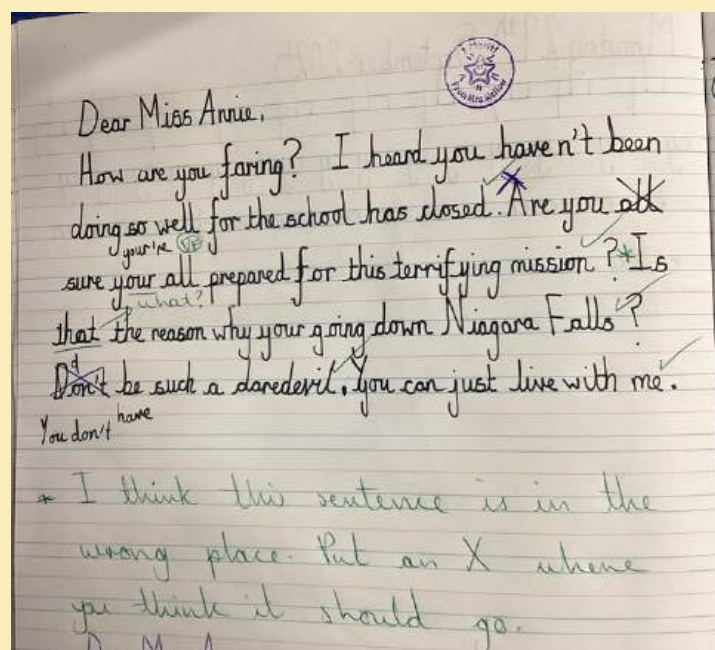 1 Merit!
From Mrs
Dear Miss Annie,
How are you faring? I heard you haven't been
doing so well for the school has closed. Are you all
your're
sure your all prepared for this terrifying mission? *Is
what?
that the reason why your going down Niagara Falls?
Don't be such a daredevil. You can just live with me.
You don't have
* I think this sentence is in the
wrong place. Put an X where
you think it should go.
D M A